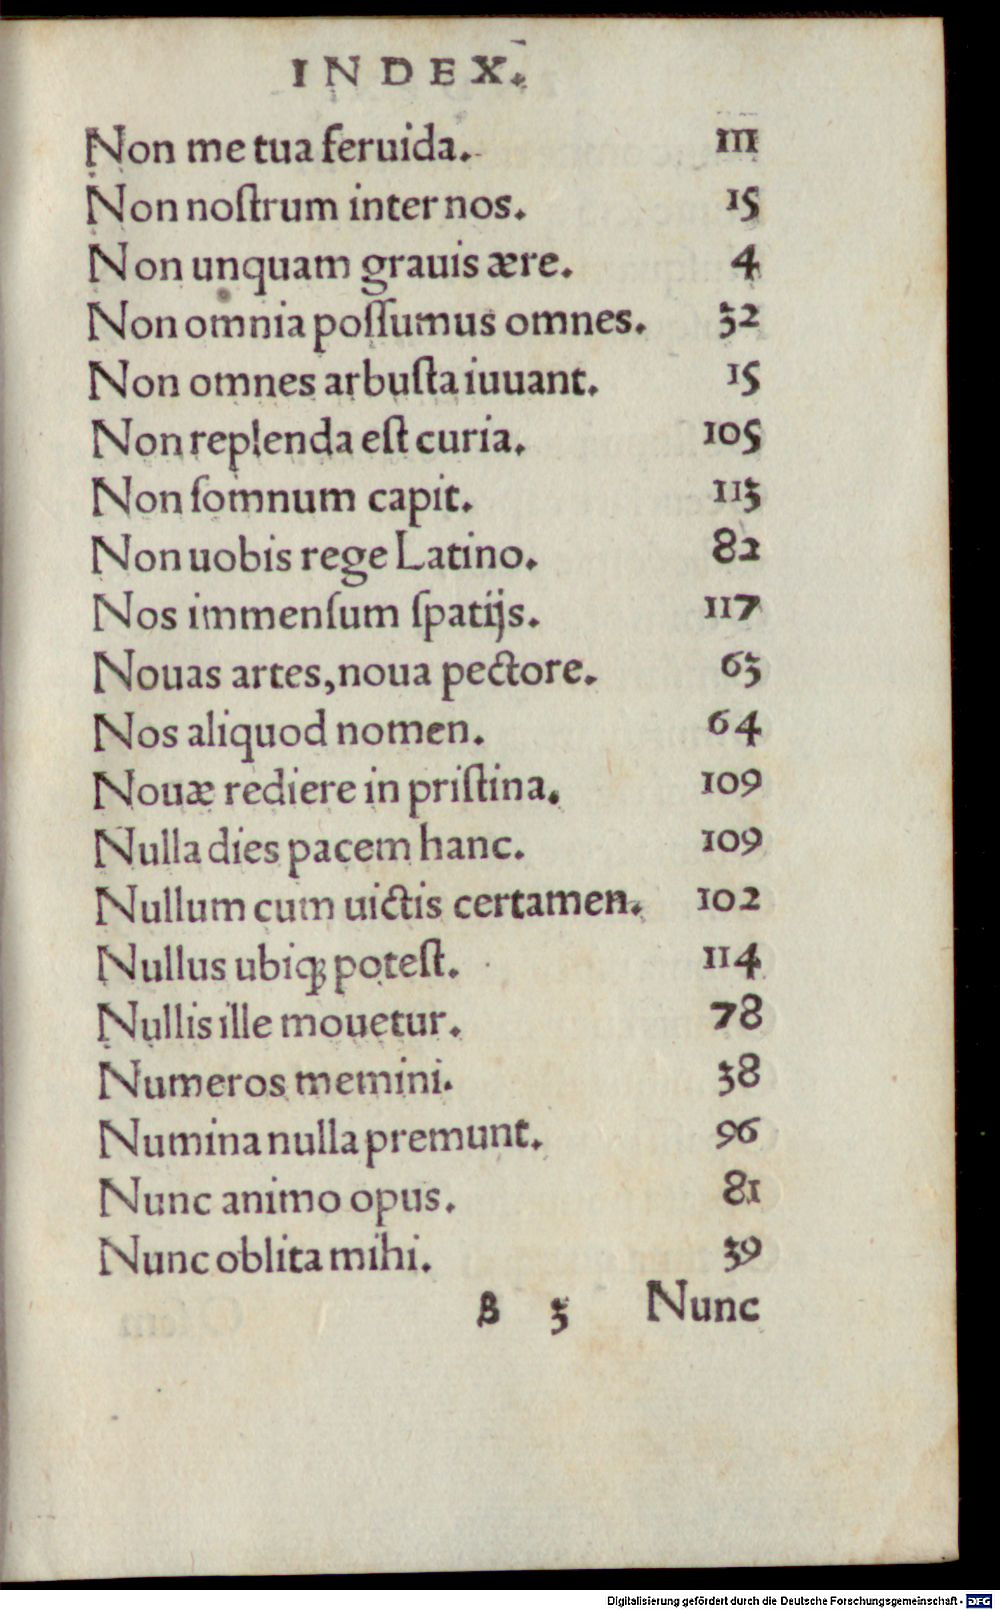 INDEX.
Non me tua feruida. 111
Non noſtrum inter nos. 15
Non unquam grauis ære. 4
Non omnia poſſumus omnes. 32
Non omnes arbuſta iuuant. 15
Non replenda eſt curia. 105
Non ſomnum capit. 113
Non uobis rege Latino. 82
Nos immenſum ſpatijs. 117
Nouas artes, noua pectore. 63
Nos aliquod nomen. 64
Nouæ rediere in priſtina. 109
Nulla dies pacem hanc. 109
Nullum cum uictis certamen. 102
Nullus ubiqꝫ poteſt. 114
Nullis ille mouetur. 78
Numeros memini. 38
Numina nulla premunt. 96
Nunc animo opus. 81
Nunc oblita mihi. 39
β 3 Nunc
Digitalisierung gefördert durch die Deutsche Forschungsgemeinschaft - DFG